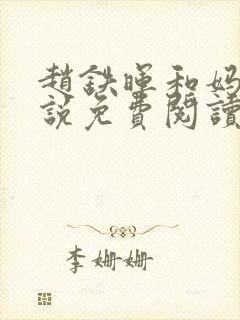 趙鉄暉和妈
說免費閱讀
李姗姗